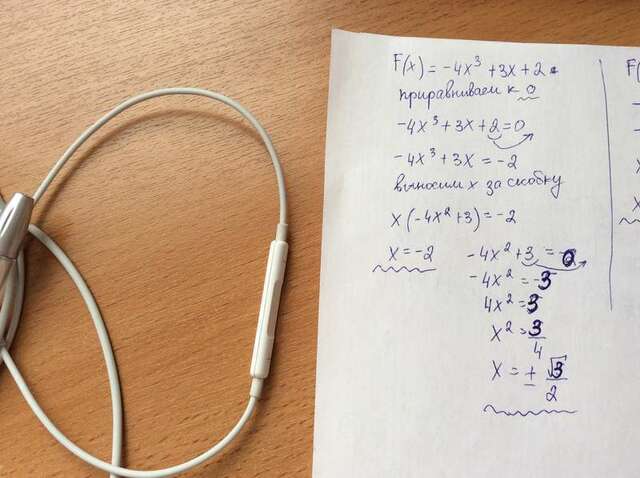 F(x) = -4x³ + 3x + 2
приравниваем к 0
-4x³ + 3x + 2 = 0
-4x³ + 3x = -2
выносим x за скобку
x(-4x² + 3) = -2
x = -2
-4x² + 3 = 0
-4x² = -3
4x² = 3
x² = 3/4
x = ± √3/2